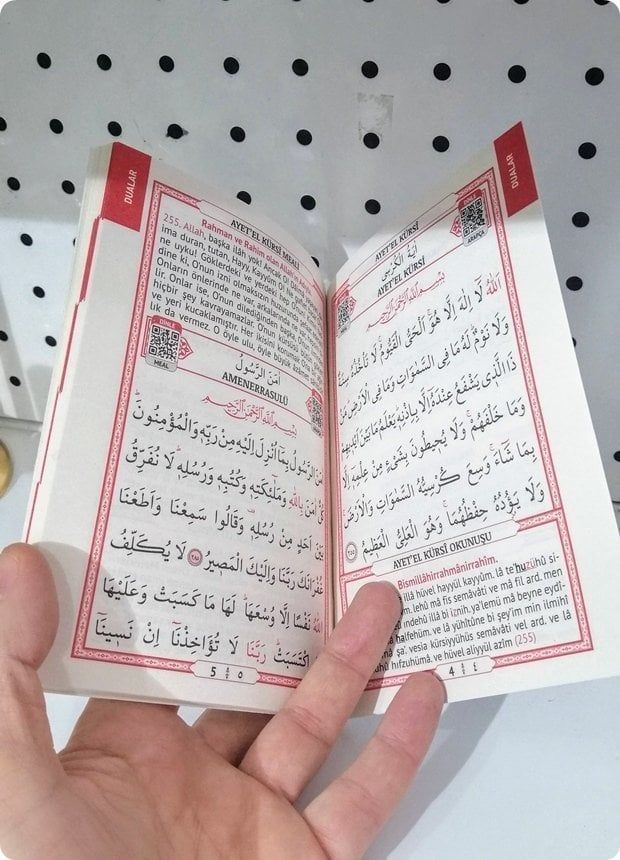 DUALAR
AYET'EL KÜRSÎ
ARAPÇA
اٰيَةُ الْكُرْسِي
AYET'EL KÜRSÎ
بِسْمِ اللّٰهِ الرَّحْمٰنِ الرَّحِيمِ
اَللّٰهُ لَا اِلٰهَ اِلَّا هُوَ اَلْحَيُّ الْقَيُّومُ لَا تَأْخُذُهُ سِنَةٌ
وَلَا نَوْمٌ لَهُ مَا فِي السَّمٰوَاتِ وَمَا فِي الْاَرْضِ مَنْ
ذَا الَّذِي يَشْفَعُ عِنْدَهُ اِلَّا بِاِذْنِهِ يَعْلَمُ مَا بَيْنَ اَيْدِيهِمْ
وَمَا خَلْفَهُمْ وَلَا يُحِيطُونَ بِشَيْءٍ مِنْ عِلْمِهِ اِلَّا
بِمَا شَاءَ وَسِعَ كُرْسِيُّهُ السَّمٰوَاتِ وَالْاَرْضَ
وَلَا يَؤُدُهُ حِفْظُهُمَا وَهُوَ الْعَلِيُّ الْعَظِيمُ ﴿٢٥٥﴾
AYET'EL KÜRSÎ OKUNUŞU
Bismillâhirrahmânirrahîm.
illâ hüvel hayyül kayyûm. lâ te'huzühû si-
lehû mâ fis semâvâti ve mâ fil ard. men
indehû illâ bi iznih. ya'lemü mâ beyne eydî-
halfehüm. ve lâ yühîtûne bi şey'im min ilmihî
şa'. vesia kürsiyyühüs semâvâti vel ard. ve lâ
hıfzuhümâ. ve hüvel aliyyül azîm (255)
4 ٤
DUALAR
AYET'EL KÜRSİ MEALİ
Rahman ve Rahim olan Allah'ın Adı
255. Allah, başka ilâh yok! Ancak O
ima duran, tutan, Hayy, Kayyûm O!
ne uyku! Göklerdeki ve yerdeki hep O'nun
dine ki, O'nun izni olmaksızın huzurunda
Onların önlerinde ne var, arkalarında ne var
lir. Onlar ise, O'nun dilediğinden başka
hiçbir şey kavrayamazlar. O'nun kürsîsi
ve yeri kucaklamıştır. Her ikisini korumak
lık da vermez. O öyle ulu, öyle büyük
DİNLE
MEAL
اٰمَنَ الرَّسُولُ
AMENERRASULÜ
بِسْمِ اللّٰهِ الرَّحْمٰنِ الرَّحِيمِ
اٰمَنَ الرَّسُولُ بِمَا اُنْزِلَ اِلَيْهِ مِنْ رَبِّهِ وَالْمُؤْمِنُونَ
كُلٌّ اٰمَنَ بِاللّٰهِ وَمَلٰئِكَتِهِ وَكُتُبِهِ وَرُسُلِهِ لَا نُفَرِّقُ
بَيْنَ اَحَدٍ مِنْ رُسُلِهِ وَقَالُوا سَمِعْنَا وَاَطَعْنَا
غُفْرَانَكَ رَبَّنَا وَاِلَيْكَ الْمَصِيرُ ﴿٢٨٥﴾ لَا يُكَلِّفُ
اللّٰهُ نَفْسًا اِلَّا وُسْعَهَا لَهَا مَا كَسَبَتْ وَعَلَيْهَا
مَا اكْتَسَبَتْ رَبَّنَا لَا تُؤَاخِذْنَا اِنْ نَسِينَا
5 ٥